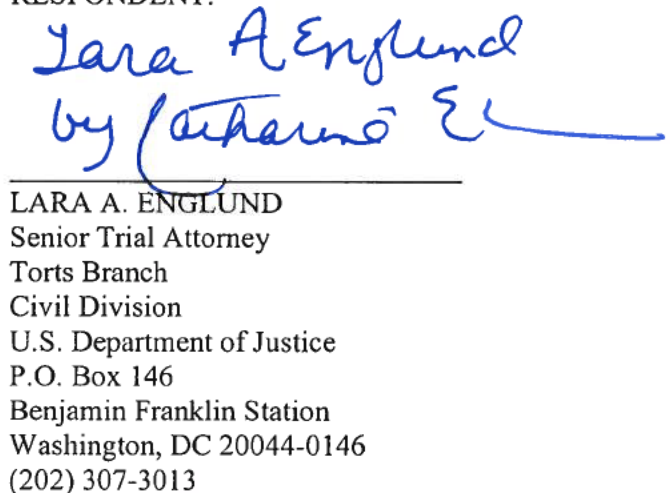 RESPONDENT:
Lara A Englund
by Catharine E
LARA A. ENGLUND
Senior Trial Attorney
Torts Branch
Civil Division
U.S. Department of Justice
P.O. Box 146
Benjamin Franklin Station
Washington, DC 20044-0146
(202) 307-3013